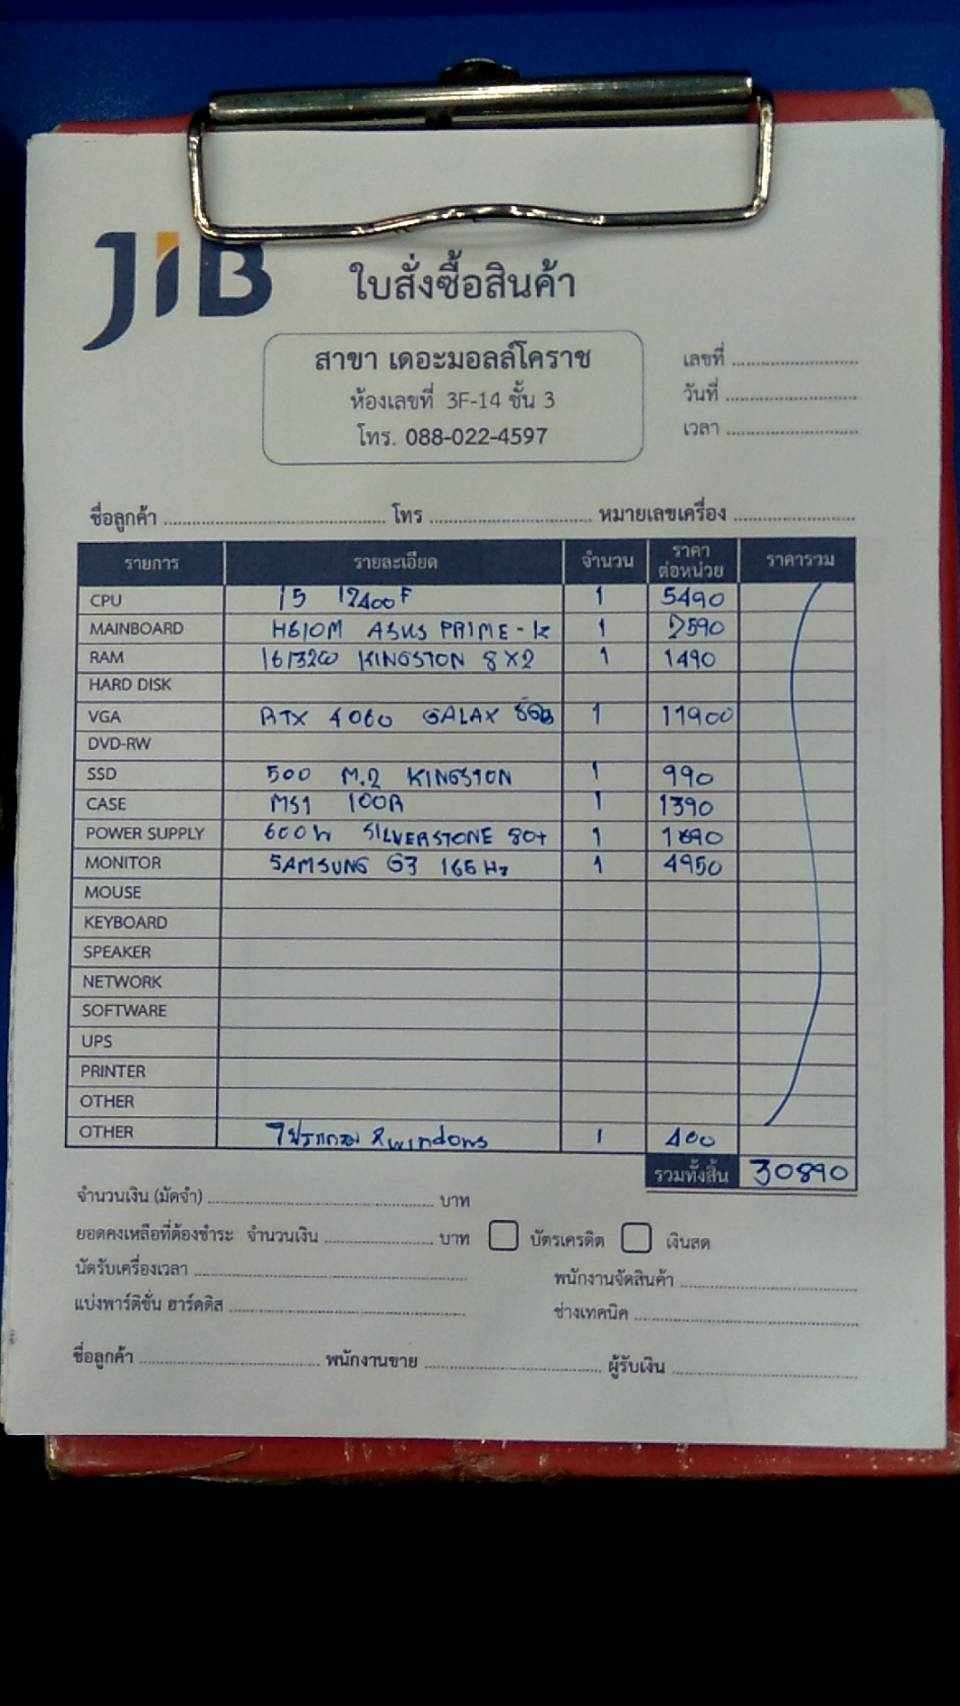 JIB
ใบสั่งซื้อสินค้า
สาขา เดอะมอลล์โคราช
ห้องเลขที่ 3F-14 ชั้น 3
โทร. 088-022-4597
เลขที่
วันที่
เวลา
ชื่อลูกค้า โทร หมายเลขเครื่อง
รายการ รายละเอียด จำนวน ราคาต่อหน่วย ราคารวม
CPU i5 12400F 1 5490
MAINBOARD H610M ASUS PRIME-K 1 2590
RAM 16/3200 KINGSTON 8X2 1 1490
HARD DISK
VGA RTX 4060 GALAX 8GB 1 11900
DVD-RW
SSD 500 M.2 KINGSTON 1 990
CASE 100R 1 1390
POWER SUPPLY 600W SILVERSTONE 80+ 1 1690
MONITOR SAMSUNG G3 165Hz 1 4950
MOUSE
KEYBOARD
SPEAKER
NETWORK
SOFTWARE
UPS
PRINTER
OTHER
OTHER windows 1 400
รวมทั้งสิ้น 30890
จำนวนเงิน (มัดจำ) บาท
ยอดคงเหลือที่ต้องชำระ จำนวนเงิน บาท บัตรเครดิต เงินสด
นัดรับเครื่องเวลา พนักงานจัดสินค้า
แบ่งพาร์ติชั่น ฮาร์ดดิส ช่างเทคนิค
ชื่อลูกค้า พนักงานขาย ผู้รับเงิน